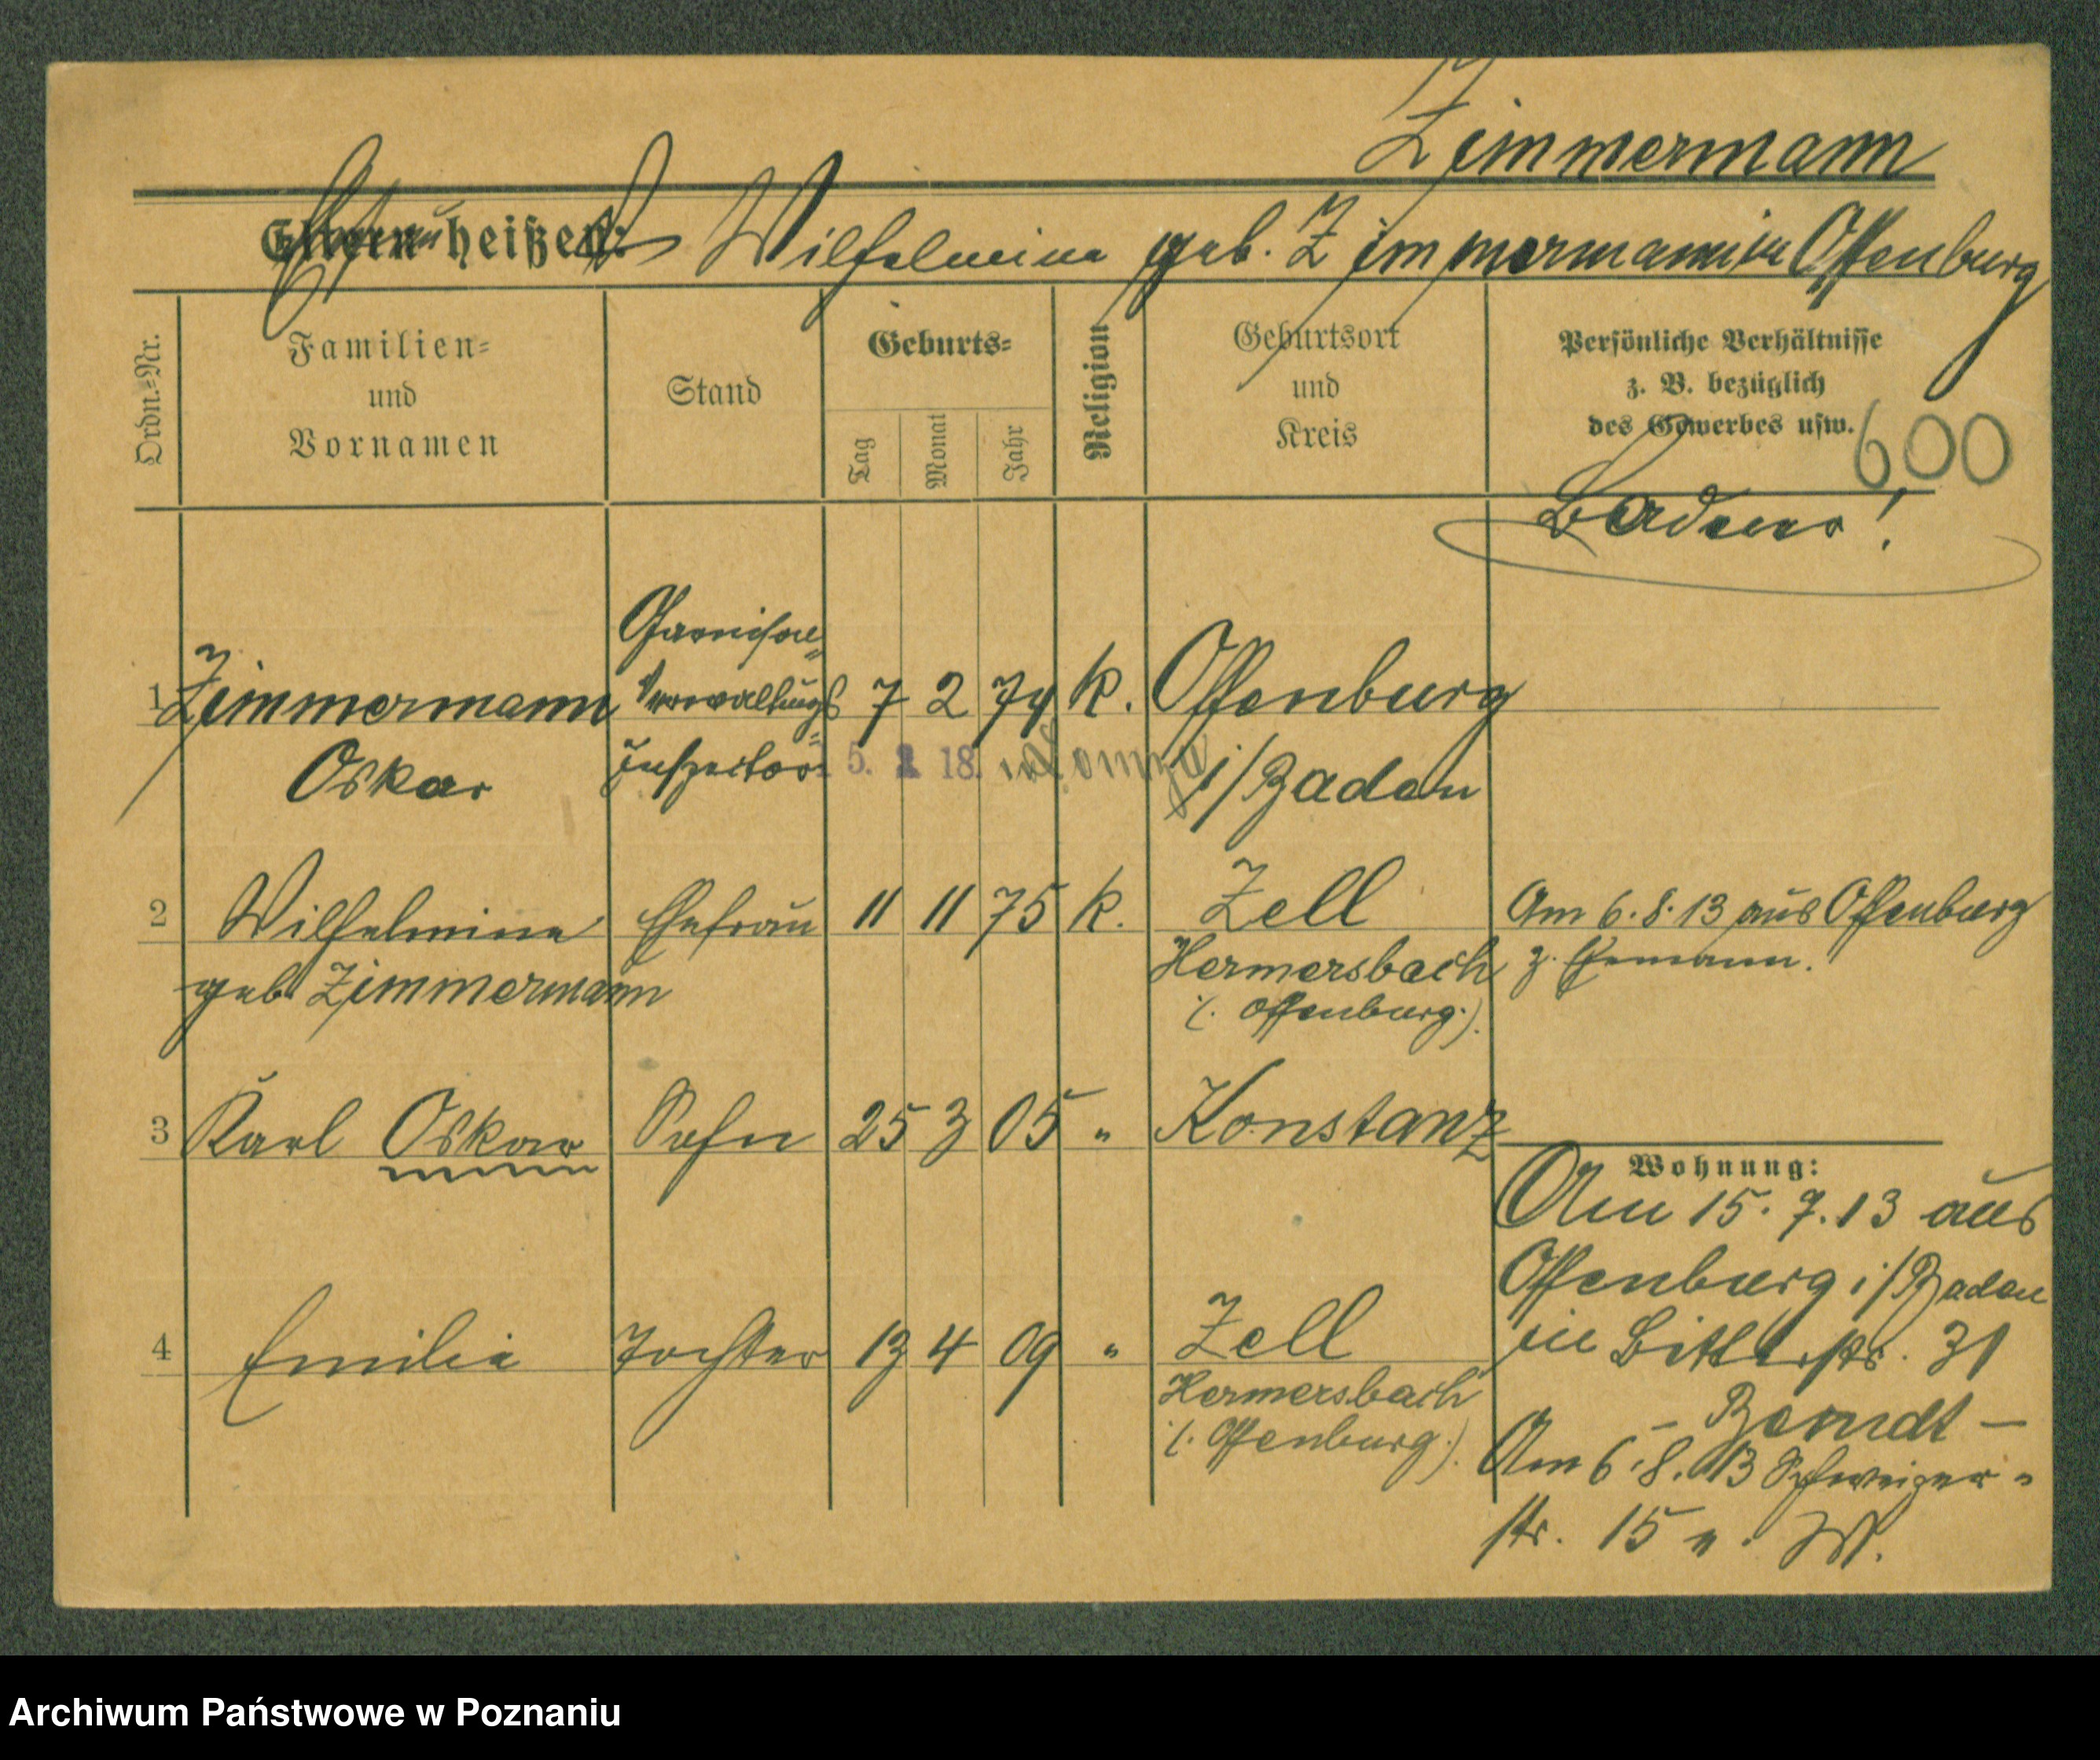 Zimmermann
Eltern heißen:
Ehefrau Wilhelmine geb. Zimmermann in Offenburg
Ordn.=Nr.
Familien=
und
Vornamen
Stand
Geburts=
Tag
Monat
Jahr
Religion
Geburtsort
und
Kreis
Persönliche Verhältnisse
z. B. bezüglich
des Gewerbes usw.
600
Badener!
1 Zimmermann Garnison= Verwaltungs= Inspektor 7 2 74 k. Offenburg
Oskar 5. 2. 18. i/Baden
2 Wilhelmine Ehefrau 11 11 75 k. Zell Am 6.8.13 aus Offenburg
geb. Zimmermann Hermersbach z. Ehemann.
(Offenburg).
3 Karl Oskar Sohn 25 3 05 " Konstanz
Wohnung:
Am 15.7.13 aus
Offenburg i/Baden
in 31
4 Emilie Tochter 13 4 09 " Zell
Hermersbach - Berndt -
(Offenburg). Am 6.8.13 Schweizer=
str. 15 n. W.
Archiwum Państwowe w Poznaniu